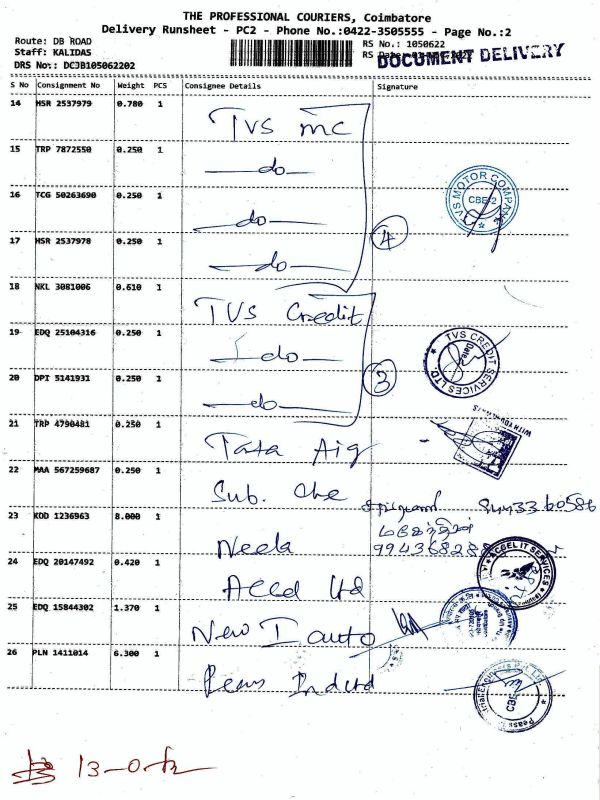 THE PROFESSIONAL COURIERS, Coimbatore
Delivery Runsheet - PC2 - Phone No.:0422-3505555 - Page No.:2
Route: DB ROAD
Staff: KALIDAS
DRS No.: DCJB105062202
RS No.: 1050622
RS Date:
DOCUMENT DELIVERY
S No Consignment No Weight PCS Consignee Details Signature
14 HSR 2537979 0.780 1 TVS mc
15 TRP 7872550 0.250 1 do
16 TCG 50263690 0.250 1 do
17 HSR 2537978 0.250 1 do
4
TVS MOTOR COMPANY
CBE-2
18 NKL 3081006 0.610 1 TVS Credit
19 EDQ 25104316 0.250 1 do
20 DPI 5141931 0.250 1 do
3
TVS CREDIT SERVICES LTD.
21 TRP 4790481 0.250 1 Tata Aig
22 MAA 567259687 0.250 1 Sub. Che
23 KOD 1236963 8.000 1 Neela
24 EDQ 20147492 0.420 1 Accd Ltd
ACBEL IT SERVICES
25 EDQ 15844302 1.370 1 New I auto
26 PLN 1411014 6.300 1 Peass Ind Ltd
CBE